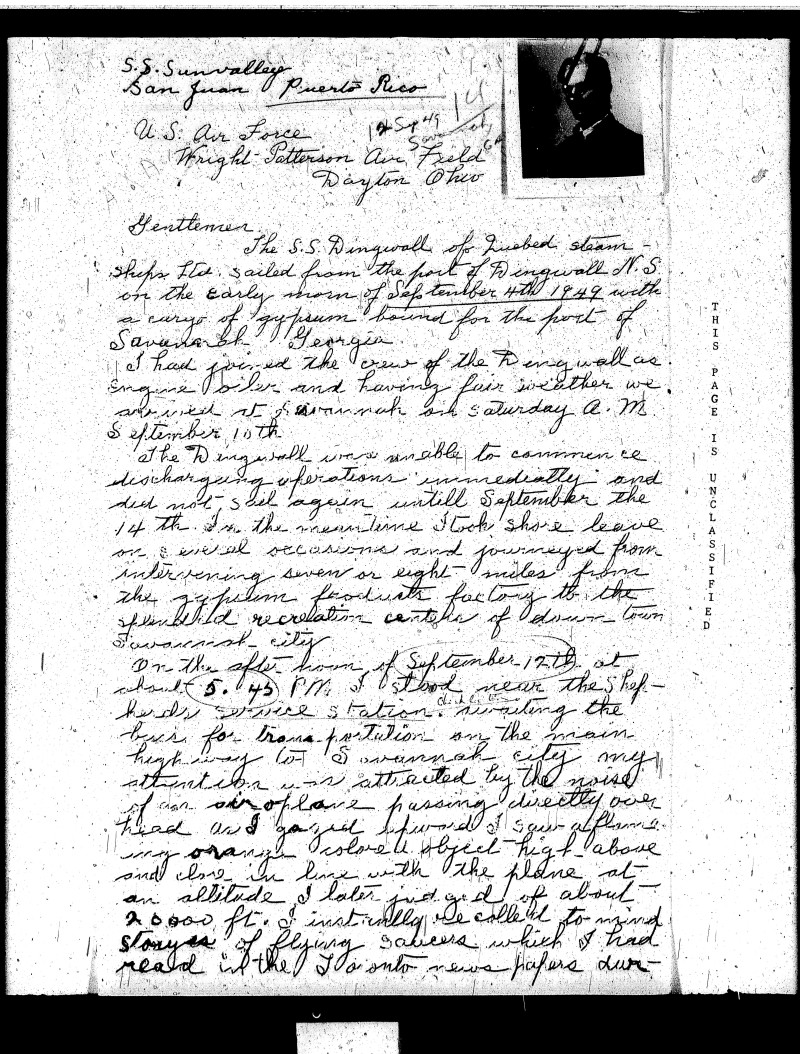 S.S. Sunvalley
San Juan Puerto Rico
14
12 Sep 49
Savannah, Ga
U.S. Air Force
Wright-Patterson Air Field
Dayton Ohio
Gentlemen
The S.S. Dingwall of Quebed steam-
ships Ltd. sailed from the port of Dingwall N.S.
on the early morn of September 4th 1949 with
a cargo of gypsum bound for the port of
Savannah Georgia.
I had joined the crew of the Dingwall as
engine oiler and having fair weather we
arrived at Savannah on Saturday A.M.
September 10th
The Dingwall was unable to commence
discharging operations immediatly and
did not sail again untill September the
14th. In the meantime I took shore leave
on several occasions and journeyed from
intervening seven or eight miles from
the gypsum products factory to the
splendid recreation centers of down town
Savannah city
On the after noon of September 12th at
about 5.45 P.M. I stood near the Shep-
herds service station awaiting the
bus for transportation on the main
highway to Savannah city my
attention was attracted by the noise
of an airoplane passing directly over
head as I gazed upward I saw a flame-
ing orange colored object high above
and close in line with the plane at
an altitude I later judged of about
20000 ft. I instantly recollect to mind
storyes of flying saucers which I had
read in the Toronto news papers dur-
THIS PAGE IS UNCLASSIFIED